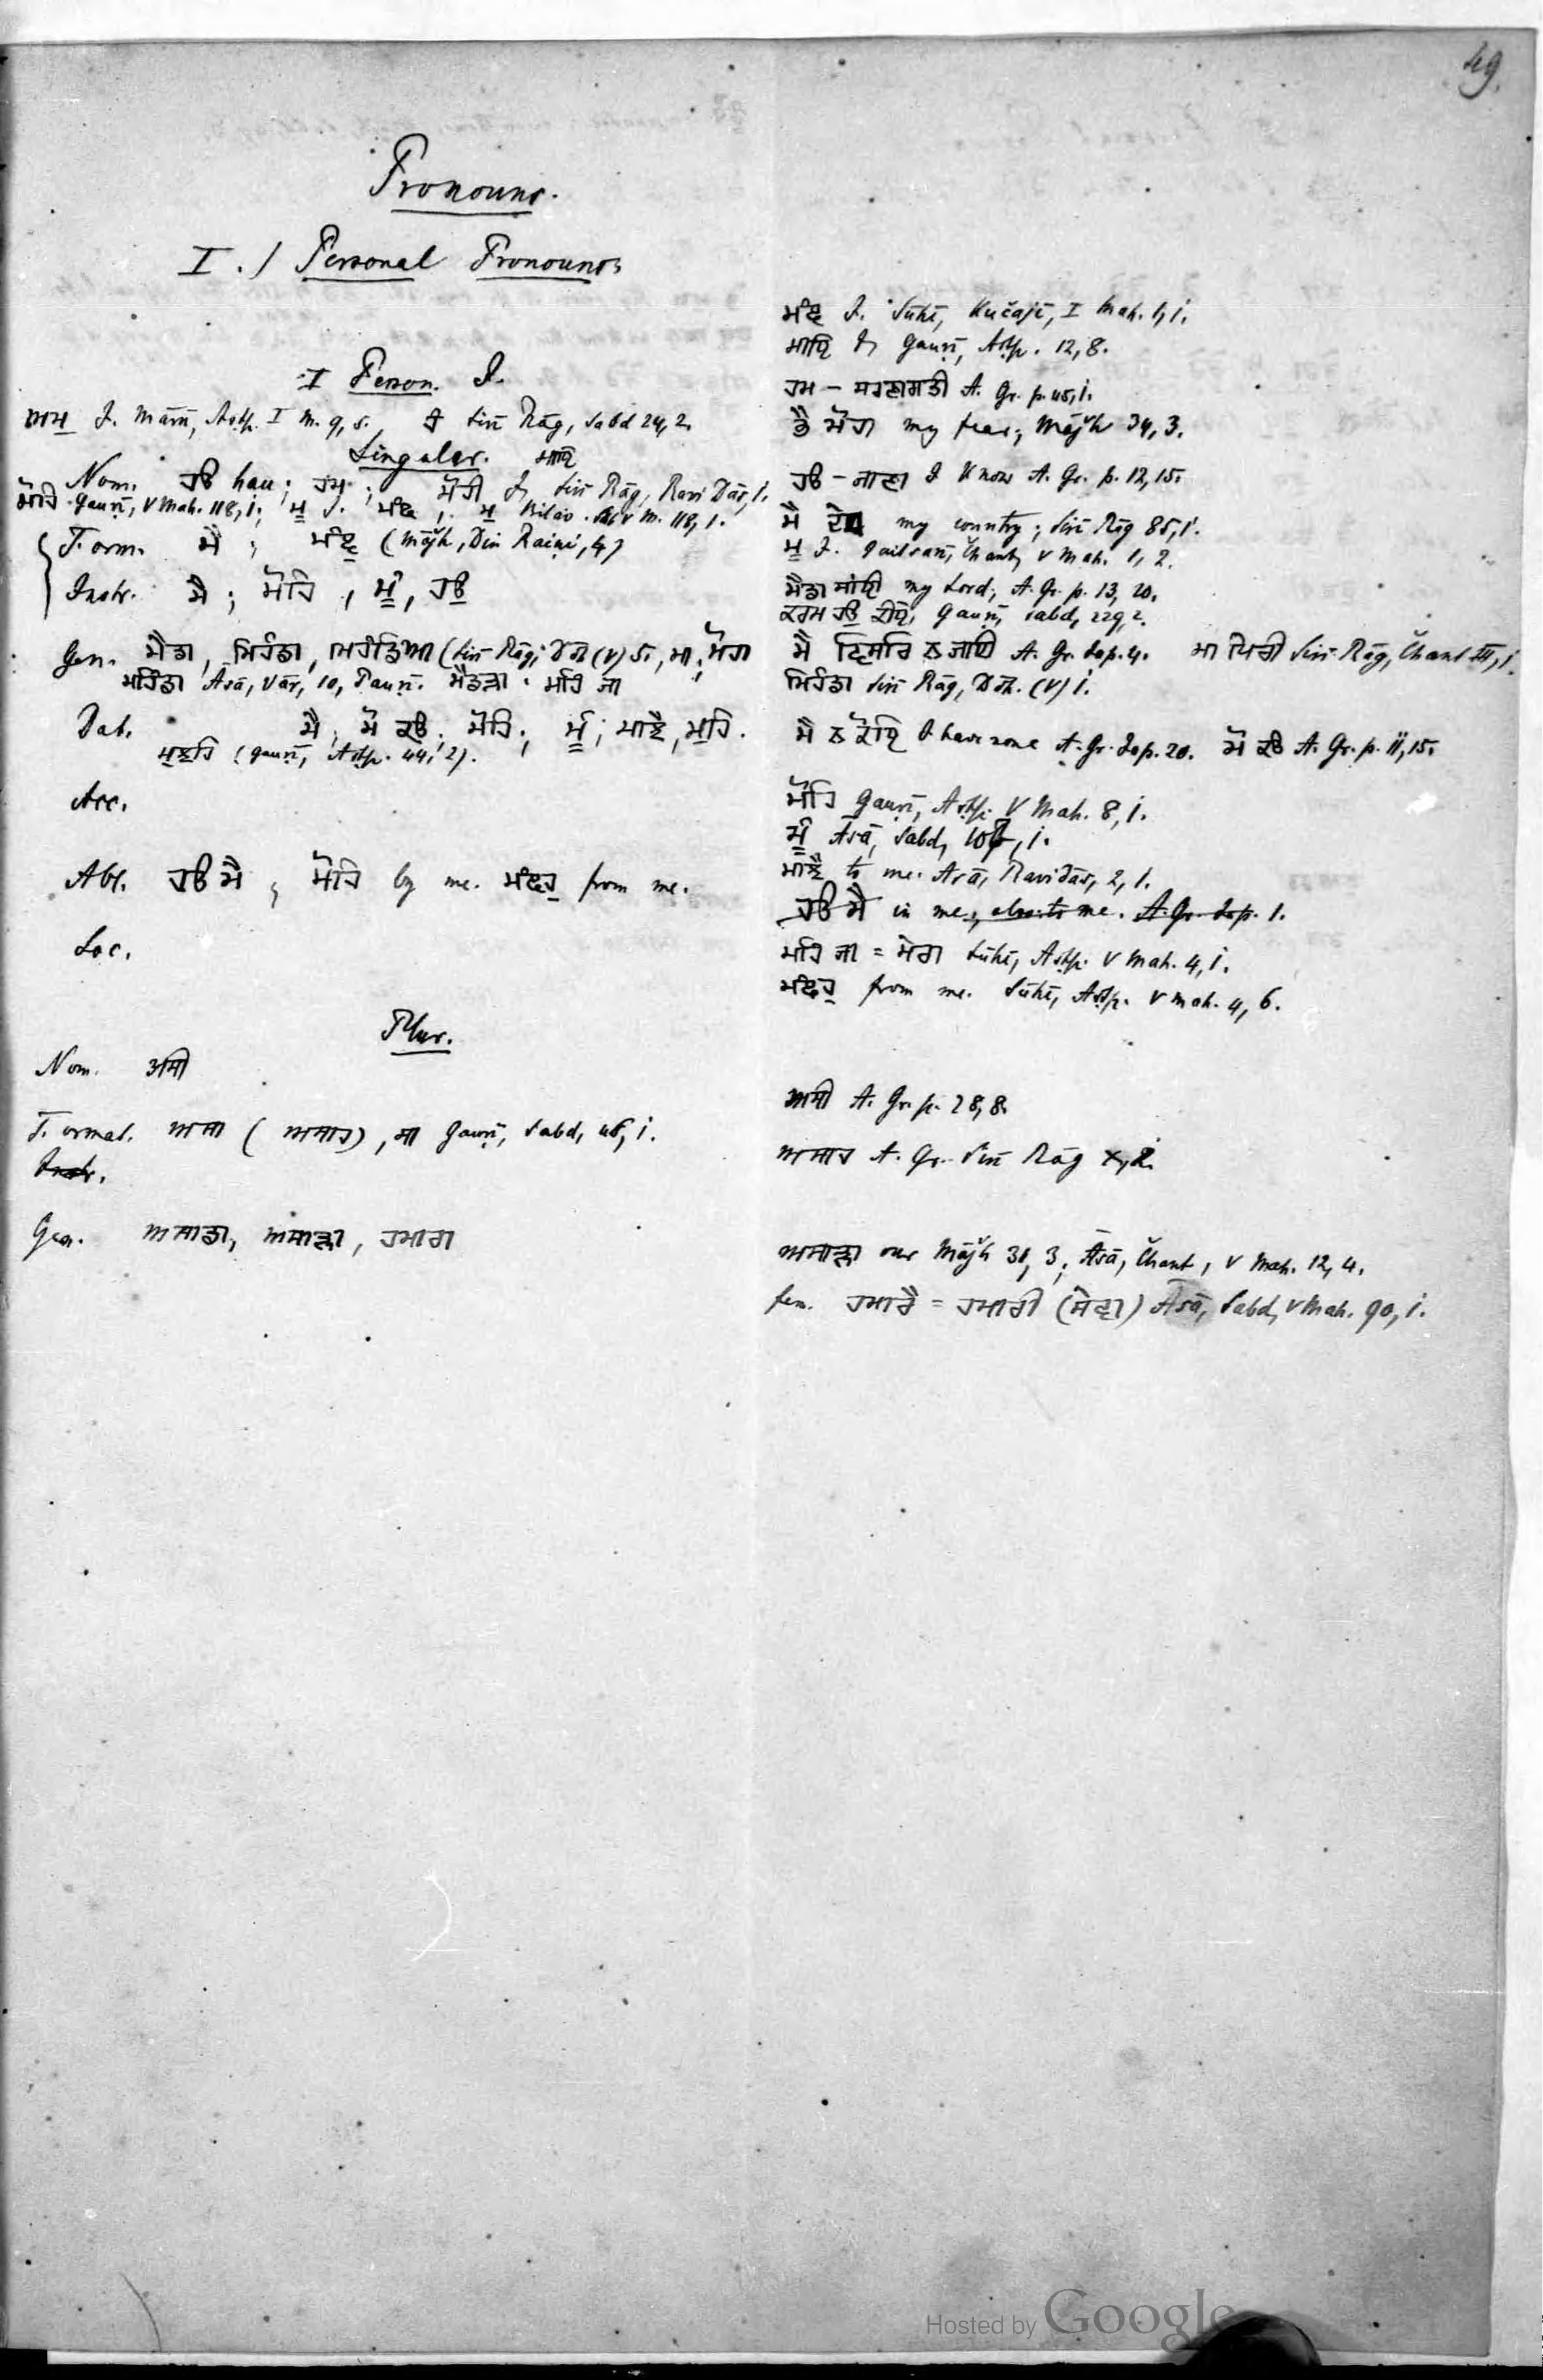 49.
Pronouns.
I.) Personal Pronouns
I Person. I.
ਅਮ I. Mārū, Aṣṭp. I M. 9, 5. ਹੋ Sirī Rāg, Sabd 24, 2.
Singular. ਮਾਧਿ
Nom. ਹਉ hau; ਹਮ; ਮੋਹੀ I, Sirī Rāg, Ravi Dās, 1.
ਮੋਹਿ Gauṛī, V Mah. 118, 1; ਮੁ I. ਮੰਞ; ਮੁ Bilāv. Sab V M. 118, 1.
Form. ਮੈ; ਮੰਞੁ (Mājh, Din Raiṇi, 4)
Instr. ਮੈ; ਮੋਹਿ, ਮੂੰ, ਹਉ
Gen. ਮੈਡਾ, ਮਿਹੰਡਾ, ਮਿਹੰਡਿਆ (Sirī Rāg; Ḍōh. (V) 5., ਮਾ, ਮੋਹਾ
ਮਹਿੰਡਾ Āsā, Vār, 10, Pauṛī. ਮੈਡੜਾ. ਮਹਿ ਜਾ
Dat. ਮੈ, ਮੋ ਕਉ; ਮੋਹਿ; ਮੂੰ; ਮਾਝੈ, ਮੁਹਿ.
ਮੁਝਹਿ (Gauṛī, Aṣṭp. 44, 2).
Acc.
Abl. ਹਉ ਮੈ; ਮੋਹਿ by me. ਮੰਞਹੁ from me.
Loc.
Plur.
Nom. ਅਸੀ
Format. ਅਸਾ (ਅਸਾਹ), ਸਾ Gauṛī, Sabd, 46, 1.
Instr.
Gen. ਅਸਾਡਾ, ਅਸਾੜਾ, ਹਮਾਰਾ
ਮੰਞ I. Sūhī, Kučajī, I Mah. 1, 1.
ਮਾਧਿ I, Gauṛī, Aṣṭp. 12, 8.
ਹਮ – ਸਰਣਾਗਤੀ A. Gr. p. 45, 1.
ਭੈ ਮੋਹਾ my fear; Mājh 34, 3.
ਹਉ – ਜਾਣਾ I know A. Gr. p. 12, 15.
ਮੈ my country; Sirī Rāg 85, 1.
ਮੁ I. Jaitsarī, Čhant, V Mah. 1, 2.
ਮੈਡਾ ਸਾਂਈ my Lord; A. Gr. p. 13, 20.
ਕਰਮ ਹਉ ਕੀਏ, Gauṛī, Sabd, 229, 2.
ਮੈ ਵਿਸਰਿ ਨ ਜਾਈ A. Gr. Jap. 4. ਮਾ ਪਿਰੀ Sirī Rāg, Čhant III, 1.
ਮਿਹੰਡਾ Sirī Rāg, Ḍōh. (V) 1.
ਮੈ ਨ ਕੋਇ I have none A. Gr. Jap. 20. ਮੋ ਕਉ A. Gr. p. 11, 15.
ਮੋਹਿ Gauṛī, Aṣṭp. V Mah. 8, 1.
ਮੂੰ Āsā, Sabd, 1.
ਮਾਝੈ to me. Āsā, Ravidās, 2, 1.
ਹਉ ਮੈ in me; also: to me. A. Gr. Jap. 1.
ਮਹਿ ਜਾ = ਮੇਰਾ Sūhī, Aṣṭp. V Mah. 4, 1.
ਮੰਞਹੁ from me. Sūhī, Aṣṭp. V Mah. 4, 6.
ਅਸੀ A. Gr. p. 28, 8.
ਅਸਾਹ A. Gr. Sirī Rāg
ਅਸਾੜਾ our Mājh 31, 3; Āsā, Čhant, V Mah. 12, 4.
fem. ਹਮਾਰੈ = ਹਮਾਰੀ (ਸੇਵਾ) Āsā, Sabd, V Mah. 90, 1.
Hosted by Google